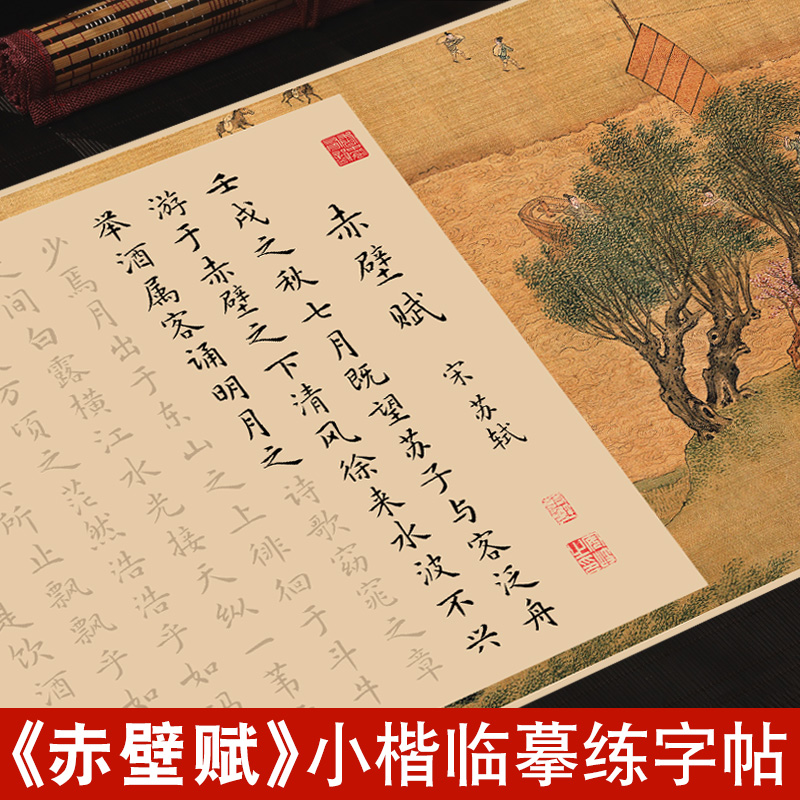 赤壁赋
宋苏轼
壬戌之秋七月既望苏子与客泛舟
游于赤壁之下清风徐来水波不兴
举酒属客诵明月之诗歌窈窕之章
少焉月出于东山之上徘徊于斗牛
之间白露横江水光接天纵一苇
万顷之茫然浩浩乎如冯
所止飘飘乎如
是饮酒
《赤壁赋》小楷临摹练字帖